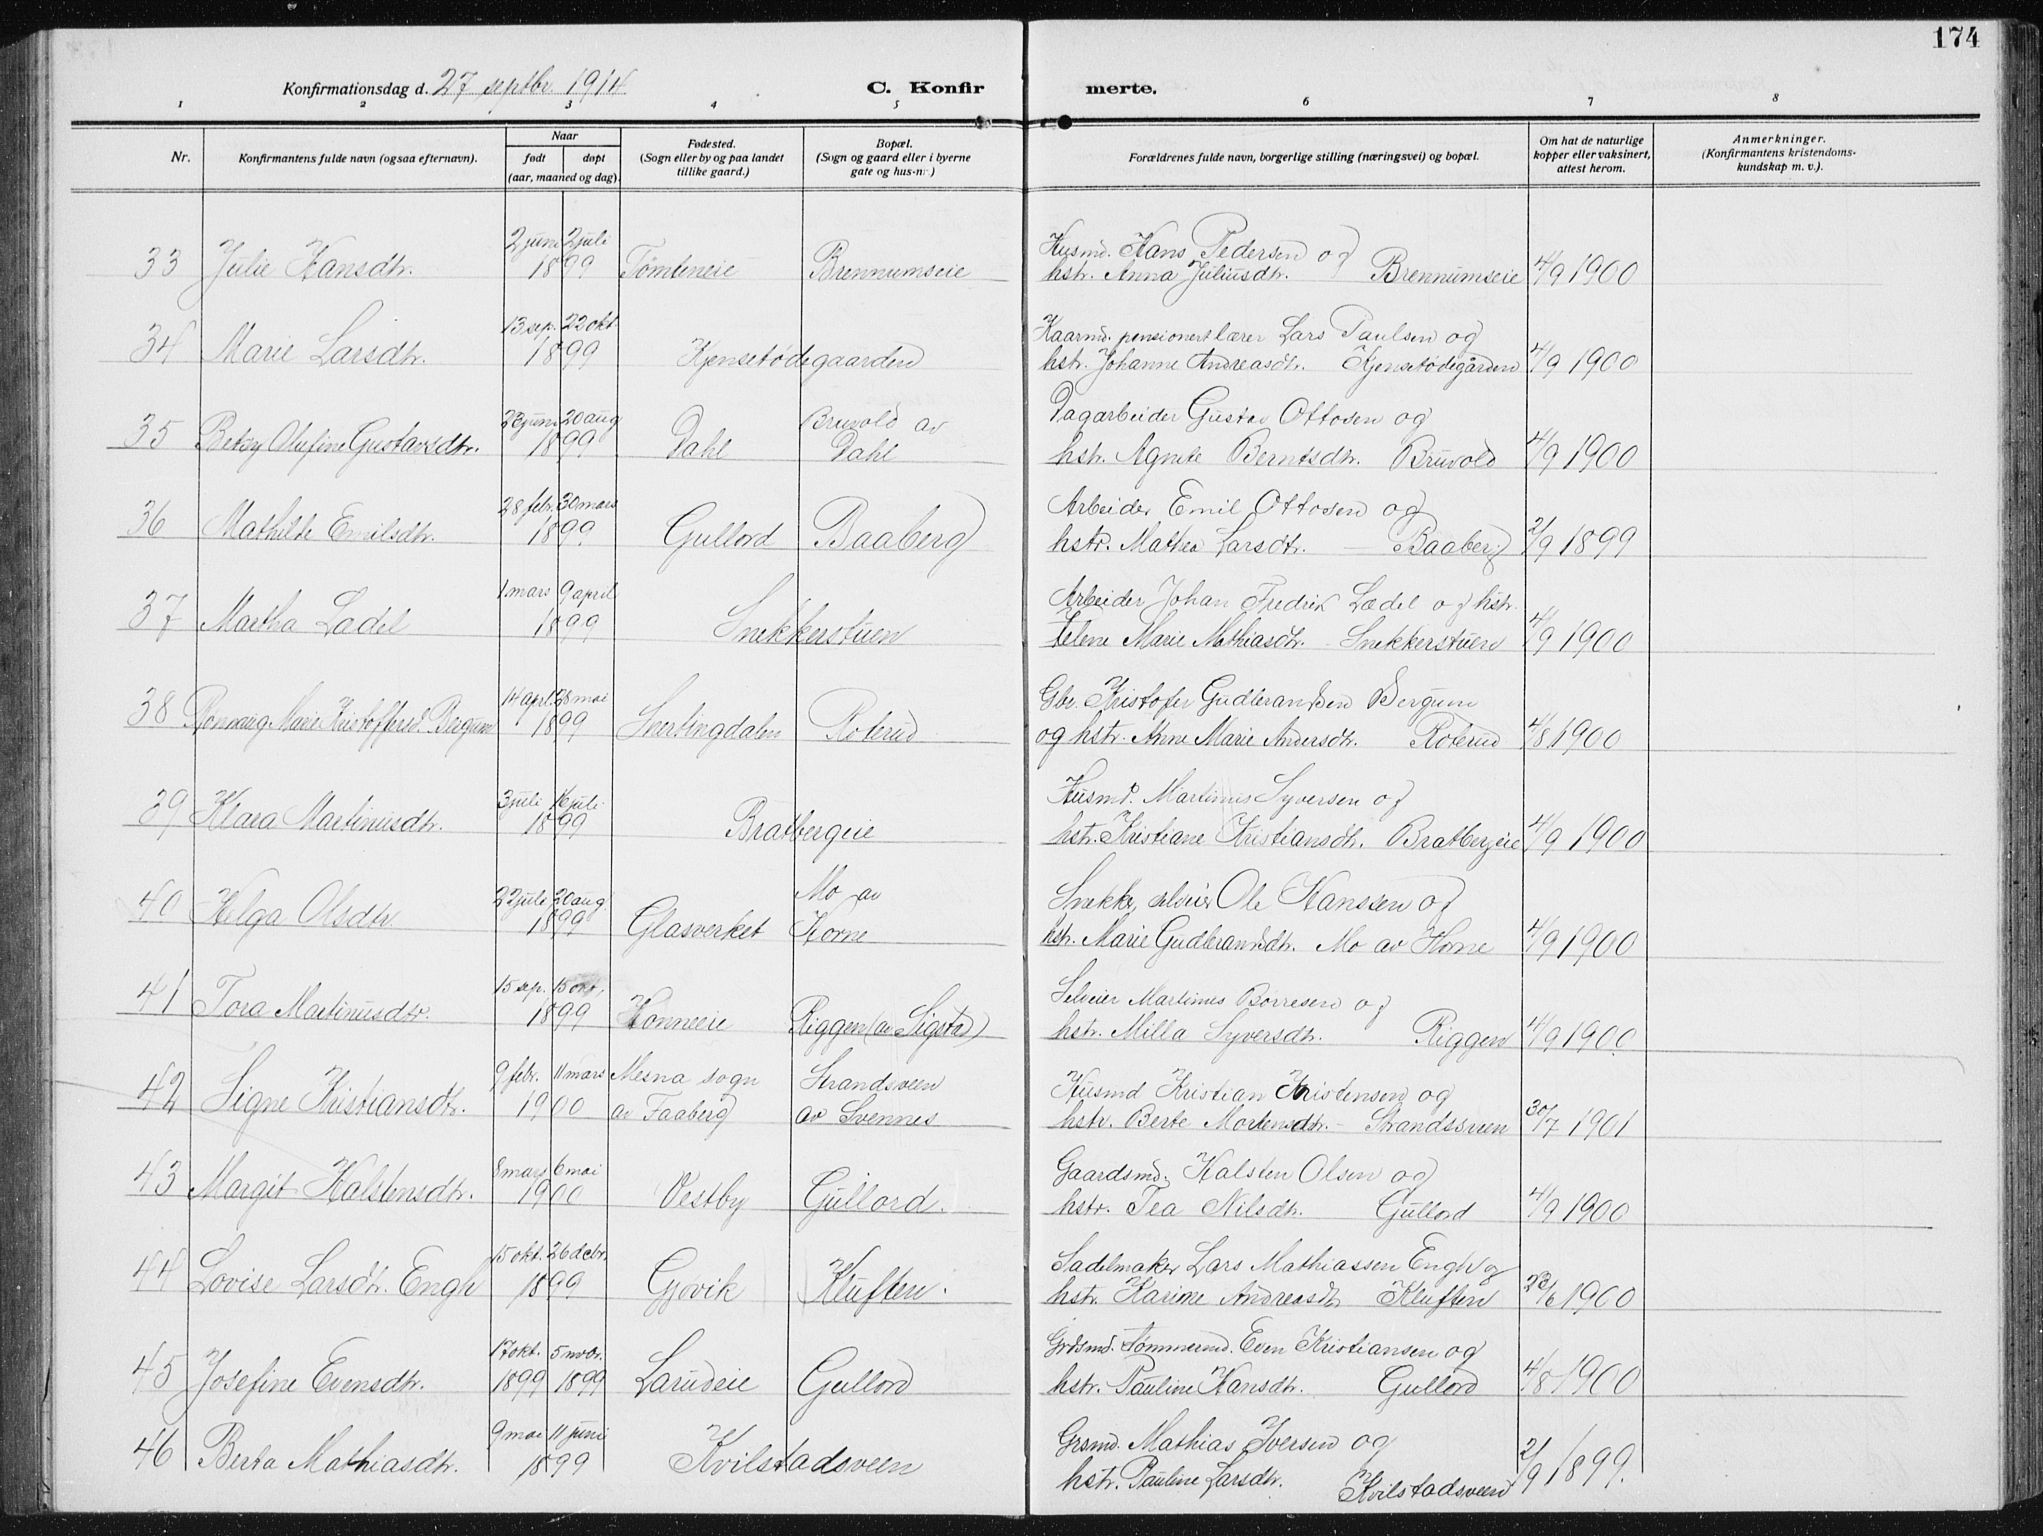 174
Konfirmationsdag d. 27 septbr. 1914
C. Konfirmerte.
1 2 3 4 5 6 7 8
Nr.
Konfirmantens fulde navn (ogsaa efternavn).
Naar
født døpt
(aar, maaned og dag).
Fødested.
(Sogn eller by og paa landet
tillike gaard.)
Bopæl.
(Sogn og gaard eller i byerne
gate og hus-nr.)
Forældrenes fulde navn, borgerlige stilling (næringsvei) og bopæl.
Om hat de naturlige
kopper eller vaksinert,
attest herom.
Anmerkninger.
(Konfirmantens kristendoms-
kundskap m. v.).
2 juni 2 juli Husmd. Hans Pedersen og
33 Julie Hansdtr. 1899 Tømteneie Brennumseie hstr. Anna Juliusdtr. Brennumseie 4/9 1900
13 sep. 22 okt. Kaarmd. pensionert lærer Lars Paulsen og
34 Marie Larsdtr. 1899 Kjensetødegaarden hstr. Johanne Andreasdtr. Kjensetødegården 4/9 1900
23 juni 20 aug Bruvold av Dagarbeider Gustav Ottosen og
35 Betsy Olufine Gustavsdtr. 1899 Dahl Dahl hstr. Agnete Berntsdtr. Bruvold 4/9 1900
28 febr. 30 mars Arbeider Emil Ottosen og
36 Mathilde Emilsdtr. 1899 Gullord Baaberg hstr. Mathea Larsdtr. Baaberg 2/9 1899
1 mars 9 april Arbeider Johan Fredrik Ladel og hstr.
37 Martha Ladel 1899 Snekkerstuen Helene Marie Mathiasdtr. Snekkerstuen 4/9 1900
14 apr. 28 mai Gbr. Kristofer Gudbrandsen Bergum
38 Ronnaug Marie Kristoffersd. Bergum 1899 Snertingdalen Roterud og hstr. Anne Marie Andersdtr. Roterud 4/8 1900
3 juli 16 juli Husmd. Martinus Syversen og
39 Klara Martinusdtr. 1899 Bratbergeie hstr. Kristiane Kristiansdtr. Bratbergeie 4/9 1900
22 juli 20 aug. Mo av Snekker, selveier Ole Hanssen og
40 Helga Olsdtr 1899 Glasverket Horne hstr. Marie Gudbrandsdtr. Mo av Horne 4/9 1900
15 sep. 15 okt. Selveier Martinus Borresen og
41 Tora Martinusdtr. 1899 Honneeie Riggen (av Sigstad) hstr. Milla Syversdtr. Riggen 4/9 1900
9 febr. 11 mars Mesna sogn Strandsveen Husmd Kristian Kristensen og
42 Signe Kristiansdtr. 1900 av Faaberg av Svennes hstr. Berte Mortensdtr. Strandsveen 30/7 1901
8 mars 6 mai Gaardsmd. Halsten Olsen og
43 Margit Halstensdtr. 1900 Vestby Gullord. hstr. Tea Nilsdtr. Gullord 4/9 1900
15 okt. 26 debr. Sadelmaker Lars Mathiassen Engh og
44 Lovise Larsdtr. Engh 1899 Gjøvik Kluften. hstr. Karine Andreasdtr Kluften 23/6 1900
17 okt. 5 novbr. Grdsmd. Tømmermd. Even Kristiansen og
45 Josefine Evensdtr. 1899 1899 Larudeie Gullord hstr. Pauline Hansdtr. Gullord 4/8 1900
9 mai 11 juni Grsmd. Mathias Iversen og
46 Berta Mathiasdtr. 1899 Kvilstadsveen hstr. Pauline Larsdtr. Kvilstadsveen 2/9 1899.